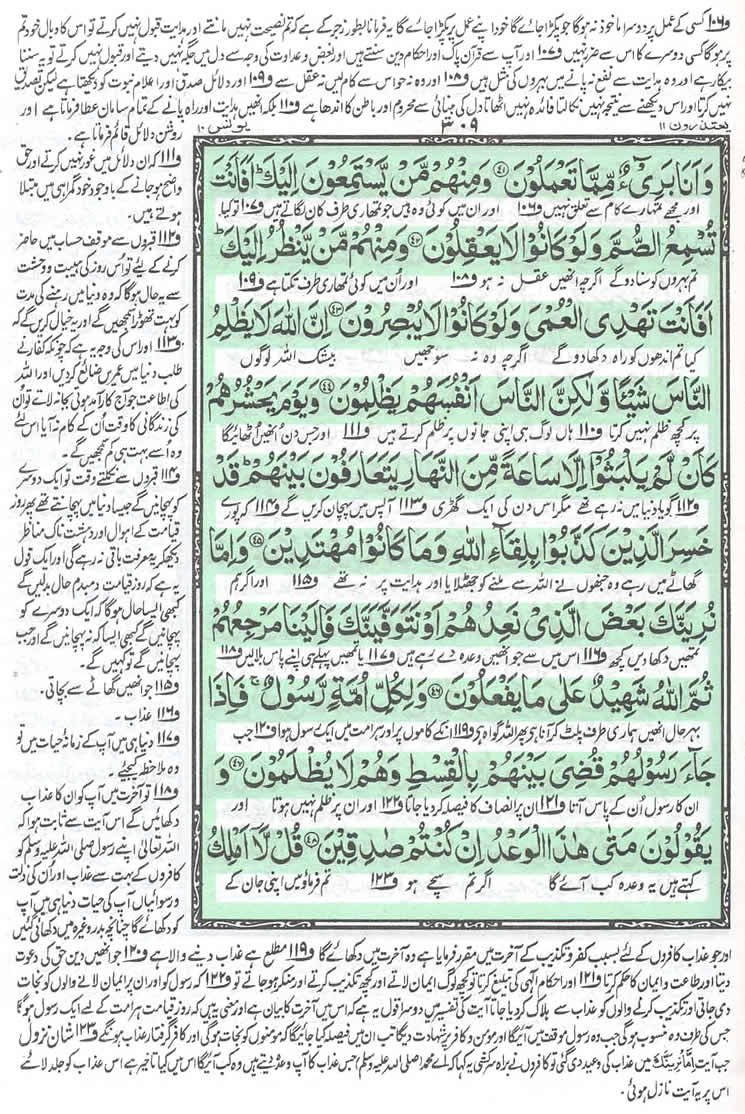 ف۱۰۶ کسی کے عمل پر دوسرا ماخوذ نہ ہوگا جو پکڑا جائے گا خود اپنے عمل پر پکڑا جائے گا یہ فرمانا بطور زجر کے ہے کہ تم نصیحت نہیں مانتے اور ہدایت قبول نہیں کرتے تو اس کا وبال خود تم
پر ہوگا کسی دوسرے کا اس سے ضرر نہیں ف۱۰۷ اور آپ سے قرآن پاک اور احکام دین سنتے ہیں اور بغض و عداوت کی وجہ سے دل میں جگہ نہیں دیتے اور قبول نہیں کرتے تو یہ سننا
بیکار ہے اور وہ ہدایت سے نفع نہ پانے میں بہروں کی مثل ہیں ف۱۰۸ اور وہ نہ حواس سے کام لیں نہ عقل سے ف۱۰۹ اور دلائل صدق اور اعلام نبوت کو دیکھتا ہے لیکن تصدیق
نہیں کرتا اور اس دیکھنے سے نتیجہ نہیں نکالتا فائدہ نہیں اٹھاتا دل کی بینائی سے محروم اور باطن کا اندھا ہے ف۱۱۰ بلکہ انھیں ہدایت اور راہ پانے کے تمام سامان عطا فرماتا ہے اور
روشن دلائل قائم فرماتا ہے۔
یعتذرون ۱۱
۳۰۹
یونس ۱۰
وَاَنَا بَرِیْٓءٌ مِّمَّا تَعْمَلُوْنَ ﴿۴۱﴾ وَمِنْهُمْ مَّنْ یَّسْتَمِعُوْنَ اِلَیْكَ ؕ اَفَاَنْتَ
اور مجھے تمہارے کام سے تعلق نہیں ف۱۰۶ اور ان میں کوئی وہ ہیں جو تمہاری طرف کان لگاتے ہیں ف۱۰۷ تو کیا
تُسْمِعُ الصُّمَّ وَلَوْ كَانُوْا لَا یَعْقِلُوْنَ ﴿۴۲﴾ وَمِنْهُمْ مَّنْ یَّنْظُرُ اِلَیْكَ ؕ
تم بہروں کو سنا دو گے اگرچہ انھیں عقل نہ ہو ف۱۰۸ اور ان میں کوئی تمہاری طرف تکتا ہے ف۱۰۹
اَفَاَنْتَ تَهْدِی الْعُمْیَ وَلَوْ كَانُوْا لَا یُبْصِرُوْنَ ﴿۴۳﴾ اِنَّ اللّٰهَ لَا یَظْلِمُ
کیا تم اندھوں کو راہ دکھا دو گے اگرچہ وہ نہ سوجھیں بیشک اللہ لوگوں
النَّاسَ شَیْـًٔا وَّلٰكِنَّ النَّاسَ اَنْفُسَهُمْ یَظْلِمُوْنَ ﴿۴۴﴾ وَیَوْمَ یَحْشُرُهُمْ
پر کچھ ظلم نہیں کرتا ف۱۱۰ ہاں لوگ ہی اپنی جانوں پر ظلم کرتے ہیں ف۱۱۱ اور جس دن انھیں اٹھائیگا
كَاَنْ لَّمْ یَلْبَثُوْٓا اِلَّا سَاعَةً مِّنَ النَّهَارِ یَتَعَارَفُوْنَ بَیْنَهُمْ ؕ قَدْ
ف۱۱۲ گویا دنیا میں نہ رہے تھے مگر اس دن کی ایک گھڑی ف۱۱۳ آپس میں پہچان کریں گے ف۱۱۴ کہ پورے
خَسِرَ الَّذِیْنَ كَذَّبُوْا بِلِقَآءِ اللّٰهِ وَمَا كَانُوْا مُهْتَدِیْنَ ﴿۴۵﴾ وَاِمَّا
گھاٹے میں رہے وہ جنھوں نے اللہ سے ملنے کو جھٹلایا اور ہدایت پر نہ تھے ف۱۱۵ اور اگر ہم
نُرِیَنَّكَ بَعْضَ الَّذِیْ نَعِدُهُمْ اَوْ نَتَوَفَّیَنَّكَ فَاِلَیْنَا مَرْجِعُهُمْ
تمہیں دکھا دیں کچھ ف۱۱۶ اس میں سے جو انھیں وعدہ دے رہے ہیں ف۱۱۷ یا تمھیں پہلے ہی اپنے پاس بلالیں ف۱۱۸
ثُمَّ اللّٰهُ شَهِیْدٌ عَلٰی مَا یَفْعَلُوْنَ ﴿۴۶﴾ وَلِكُلِّ اُمَّةٍ رَّسُوْلٌ ۚ فَاِذَا
بہر حال انھیں ہماری طرف پلٹ کر آنا ہے پھر اللہ گواہ ہے ف۱۱۹ انکے کاموں پر اور ہر امت میں ایک رسول ہوا ف۱۲۰ جب
جَآءَ رَسُوْلُهُمْ قُضِیَ بَیْنَهُمْ بِالْقِسْطِ وَهُمْ لَا یُظْلَمُوْنَ ﴿۴۷﴾ وَ
ان کا رسول ان کے پاس آتا ف۱۲۱ ان پر انصاف کا فیصلہ کر دیا جاتا ف۱۲۲ اور ان پر ظلم نہیں ہوتا اور
یَقُوْلُوْنَ مَتٰی هٰذَا الْوَعْدُ اِنْ كُنْتُمْ صٰدِقِیْنَ ﴿۴۸﴾ قُلْ لَّآ اَمْلِكُ
کہتے ہیں یہ وعدہ کب آئے گا اگر تم سچے ہو ف۱۲۳ تم فرماؤ میں اپنی جان کے
ف۱۱۱ کہ ان دلائل میں غور نہیں کرتے اور حق
واضح ہو جانے کے باوجود خود گمراہی میں مبتلا
ہوتے ہیں۔
ف۱۱۲ قبروں سے موقف حساب میں حاضر
کرنے کے لیے تو اس روز کی ہیبت و وحشت
سے یہ حال ہوگا کہ وہ دنیا میں رہنے کی مدت
کو بہت تھوڑا سمجھیں گے اور یہ خیال کریں گے کہ
ف۱۱۳ اور اس کی وجہ یہ ہے کہ چونکہ کفار نے
طلب دنیا میں عمریں ضائع کر دیں اور اللہ
کی اطاعت جو آج کارآمد ہوتی بجا نہ لائے تو ان
کی زندگانی کا وقت ان کے کام نہ آیا اس لئے
وہ اسے بہت ہی کم سمجھیں گے۔
ف۱۱۴ قبروں سے نکلتے وقت تو ایک دوسرے
کو پہچانیں گے جیسا دنیا میں پہچانتے تھے پھر روز
قیامت کے اہوال اور دہشت ناک مناظر
دیکھ کر یہ معرفت باقی نہ رہے گی اور ایک قول
یہ ہے کہ روز قیامت دمبدم حال بدلیں گے
کبھی ایسا حال ہوگا کہ ایک دوسرے کو
پہچانیں گے اور کبھی ایسا کہ نہ پہچانیں گے اور جب
پہچانیں گے تو کہیں گے۔
ف۱۱۵ جو انھیں گھاٹے سے بچاتی۔
ف۱۱۶ عذاب۔
ف۱۱۷ دنیا ہی میں آپ کے زمانۂ حیات میں تو
وہ ملاحظہ کیجئے
ف۱۱۸ تو آخرت میں آپ کو ان کا عذاب
دکھائیں گے اس آیت سے ثابت ہوا کہ
اللہ تعالیٰ اپنے رسول صلی اللہ علیہ وسلم کو
کافروں کے بہت سے عذاب اور ان کی ذلت
و رسوائیاں آپ کی حیات دنیا ہی میں آپ
کو دکھائے گا چنانچہ بدر وغیرہ میں دکھائی گئیں
اور جو عذاب کافروں کے لئے بسبب کفر و تکذیب کے آخرت میں مقرر فرمایا ہے وہ آخرت میں دکھائے گا ف۱۱۹ مطلع ہے عذاب دینے والا ہے ف۱۲۰ جو انھیں دین حق کی دعوت
دیتا اور طاعت و ایمان کا حکم کرتا ف۱۲۱ اور احکام الٰہی کی تبلیغ کرتا تو کچھ لوگ ایمان لاتے اور کچھ تکذیب کرتے اور منکر ہو جاتے تو ف۱۲۲ کہ رسول کو اور ان پر ایمان لانے والوں کو نجات
دی جاتی اور تکذیب کرنے والوں کو عذاب سے ہلاک کر دیا جاتا آیت کی تفسیر میں دوسرا قول یہ ہے کہ اس میں آخرت کا بیان ہے اور معنی یہ ہیں کہ روز قیامت ہر امت کے لیے ایک رسول ہوگا
جس کی طرف وہ منسوب ہوگی جب وہ رسول موقف میں آئیگا اور مومن و کافر پر شہادت دیگا تب ان میں فیصلہ کیا جائیگا کہ مومنوں کو نجات ہوگی اور کافر گرفتار عذاب ہونگے ف۱۲۳ شان نزول
جب آیت اِمَّا نُرِیَنَّكَ میں عذاب کی وعید دی گئی تو کافروں نے براہ سرکشی یہ کہا کہ اے محمد صلی اللہ علیہ وسلم جس عذاب کا آپ وعدہ دیتے ہیں وہ کب آئیگا اس میں کیا تاخیر ہے اس عذاب کو جلد لائے
اس پر یہ آیت نازل ہوئی۔